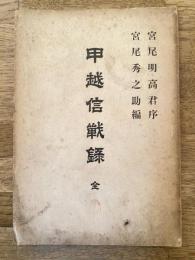 宮尾明高君序
宮尾秀之助編
甲越信戦録
全